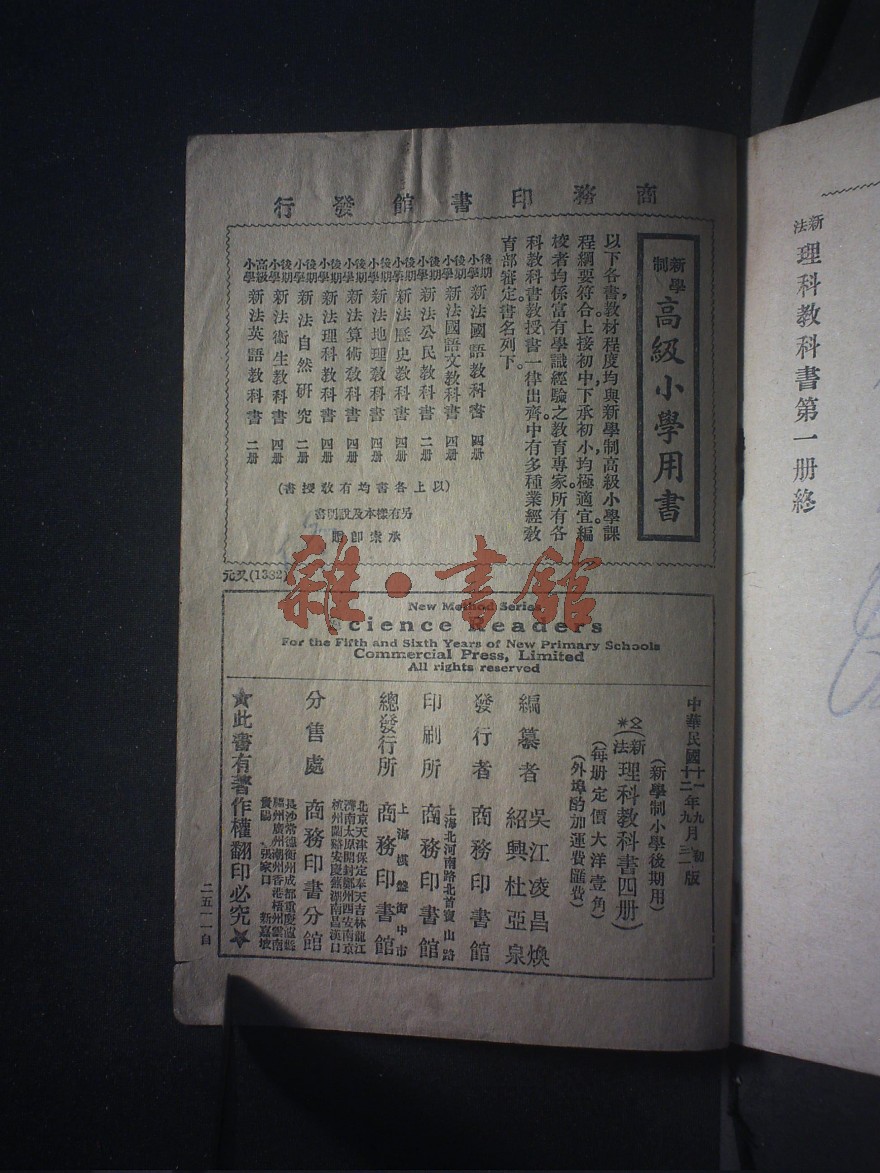 新法
理科教科書第一册終
商務印書館發行
新學制
高級小學用書
以下各書教材程度均與新學制高級小學課
程綱要符合上接初中下承初小均極適宜編
校者均係富有學識經驗之教育專家所有各
科教科書教授書一律出齊中有多種業經教
育部審定書名列下
後期小學 新法國語教科書 四册
後期小學 新法國語文教科書 四册
後期小學 新法公民教科書 二册
後期小學 新法歷史教科書 四册
後期小學 新法地理教科書 四册
後期小學 新法算術教科書 四册
後期小學 新法理科教科書 四册
後期小學 新法自然研究 二册
後期小學 新法衛生教科書 四册
高級小學 新法英語教科書 二册
(以上各書均有教授書)
另有樣本及說明書
承索即贈
元又(1332)
雜·書館
New Method Series
Science Readers
For the Fifth and Sixth Years of New Primary Schools
Commercial Press, Limited
All rights reserved
中華民國十一年九月初版
十二年九月三一版
(新學制小學後期用)
(新法理科教科書四册)
(每册定價大洋壹角)
(外埠酌加運費匯費)
編纂者 吳江凌昌煥
紹興杜亞泉
發行者 商務印書館
印刷所 上海北河南路北首寶山路
商務印書館
總發行所 上海棋盤街中市
商務印書館
分售處 北京天津保定奉天吉林龍江
濟南太原開封鄭州西安南京
杭州蘭谿安慶蕪湖南昌漢口
商務印書分館
長沙常德衡州成都重慶瀘縣
福州廣州潮州香港梧州雲南
貴陽 張家口 新嘉坡
★此書有著作權翻印必究★
二五一一自